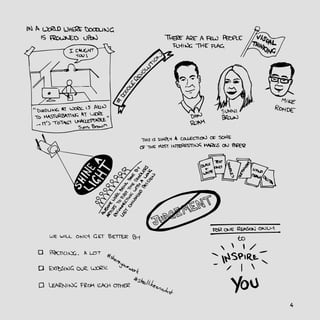 IN A WORLD WHERE DOODLING
IS FROWNED UPON
I CAUGHT
YOU!
"DOODLING AT WORK IS AKIN
TO MASTURBATING AT WORK
- IT'S TOTALLY UNACCEPTABLE"
Sunni Brown
# DOODLE REVOLUTION
THERE ARE A FEW PEOPLE
FLYING THE FLAG
VISUAL
THINKING
DAN
ROAM
SUNNI
BROWN
MIKE
ROHDE
THIS IS SIMPLY A COLLECTION OF SOME
OF THE MOST INTERESTING MARKS ON PAPER
SHINE A
LIGHT
JUDGEMENT
WE WILL ONLY GET BETTER BY
PRACTICING. A LOT
EXPOSING OUR WORK
#showyourwork
LEARNING FROM EACH OTHER
FOR ONE REASON ONLY
to
INSPIRE
YOU
4